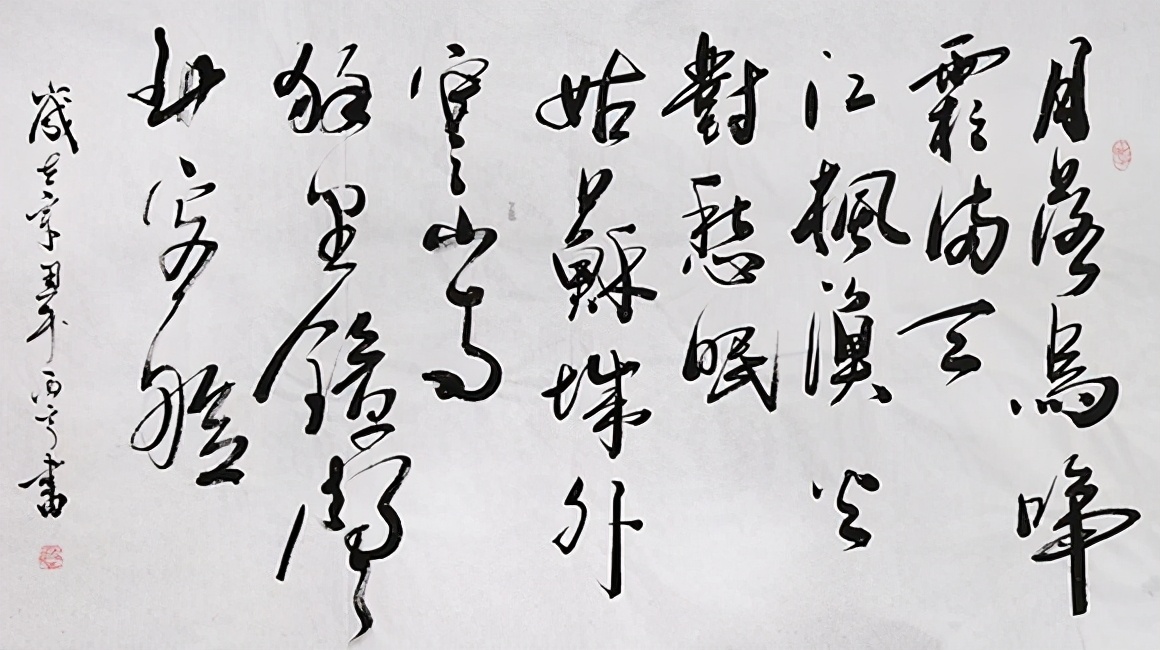 月落烏啼
霜滿天
江楓漁火
對愁眠
姑蘇城外
寒山寺
夜里鐘聲
到客船
歲在辛丑年丙書